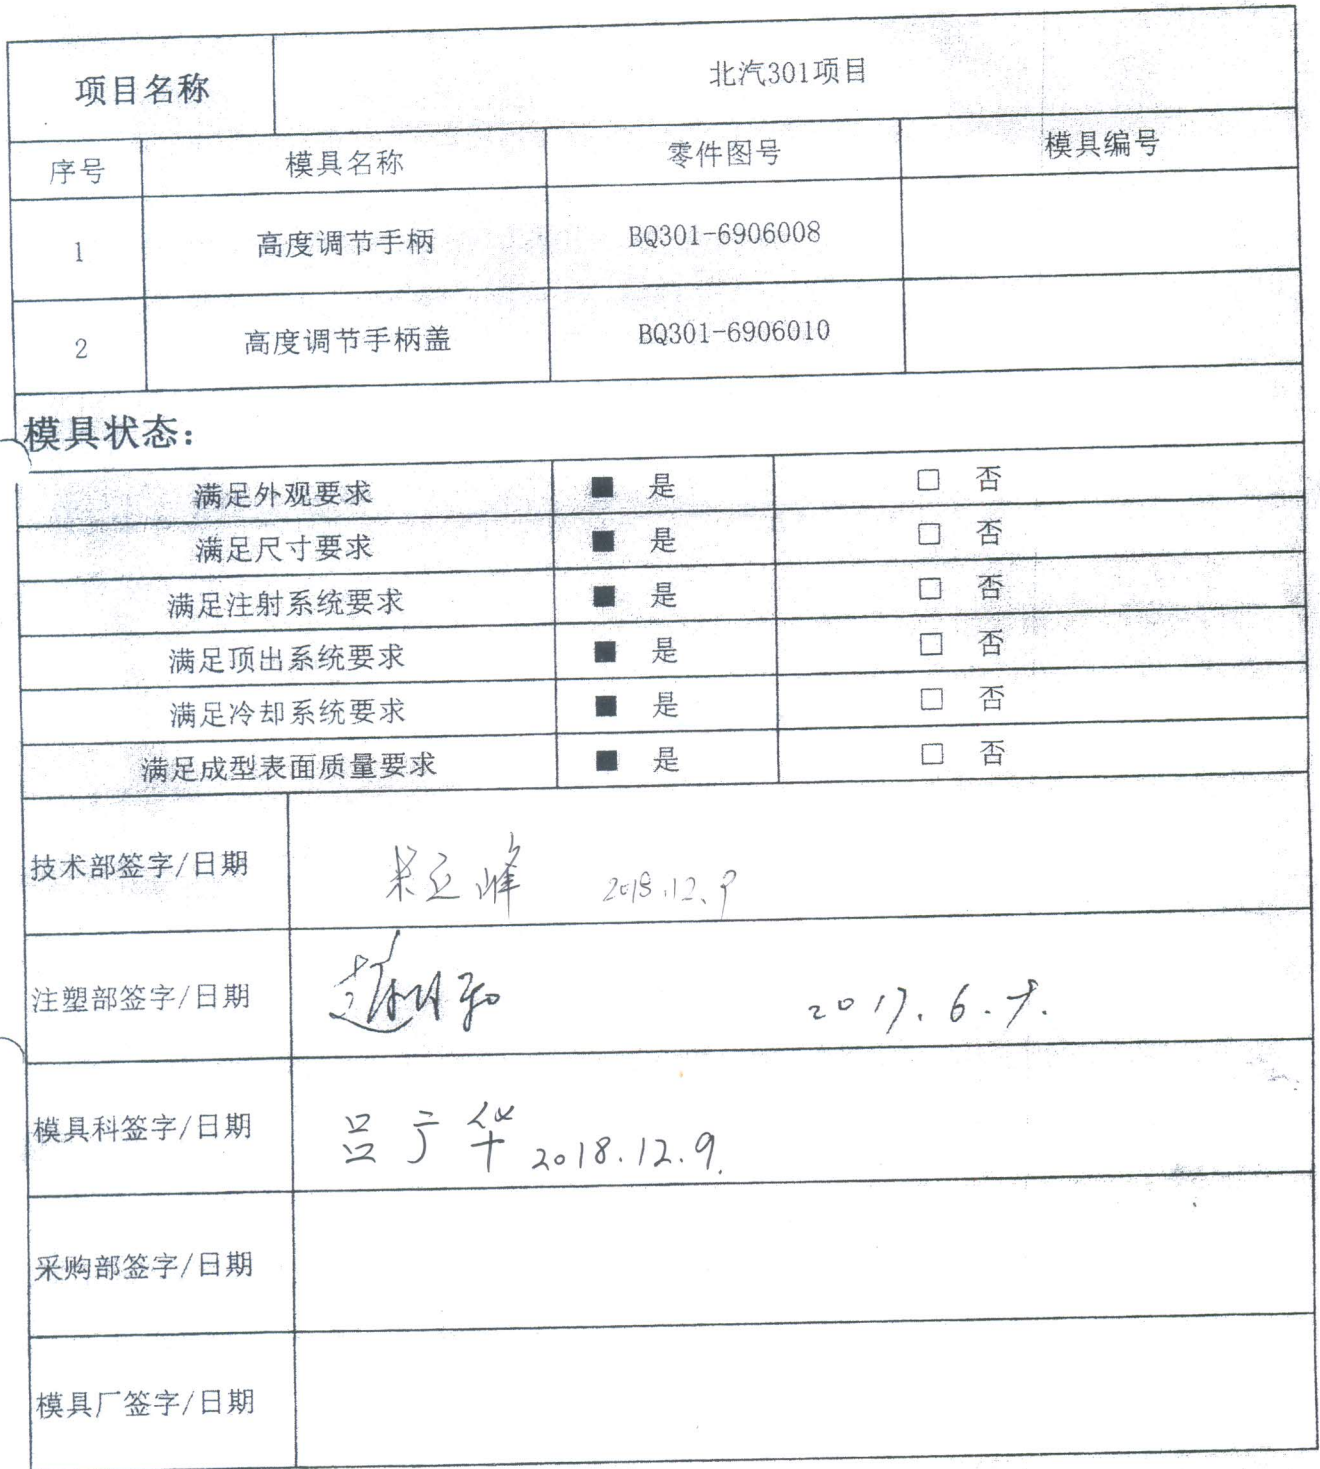 项目名称 北汽301项目
序号 模具名称 零件图号 模具编号
1 高度调节手柄 BQ301-6906008
2 高度调节手柄盖 BQ301-6906010
模具状态：
满足外观要求 ■ 是 □ 否
满足尺寸要求 ■ 是 □ 否
满足注射系统要求 ■ 是 □ 否
满足顶出系统要求 ■ 是 □ 否
满足冷却系统要求 ■ 是 □ 否
满足成型表面质量要求 ■ 是 □ 否
技术部签字/日期 2018.12.9
注塑部签字/日期 2017.6.
模具科签字/日期 吕广华 2018.12.9.
采购部签字/日期
模具厂签字/日期